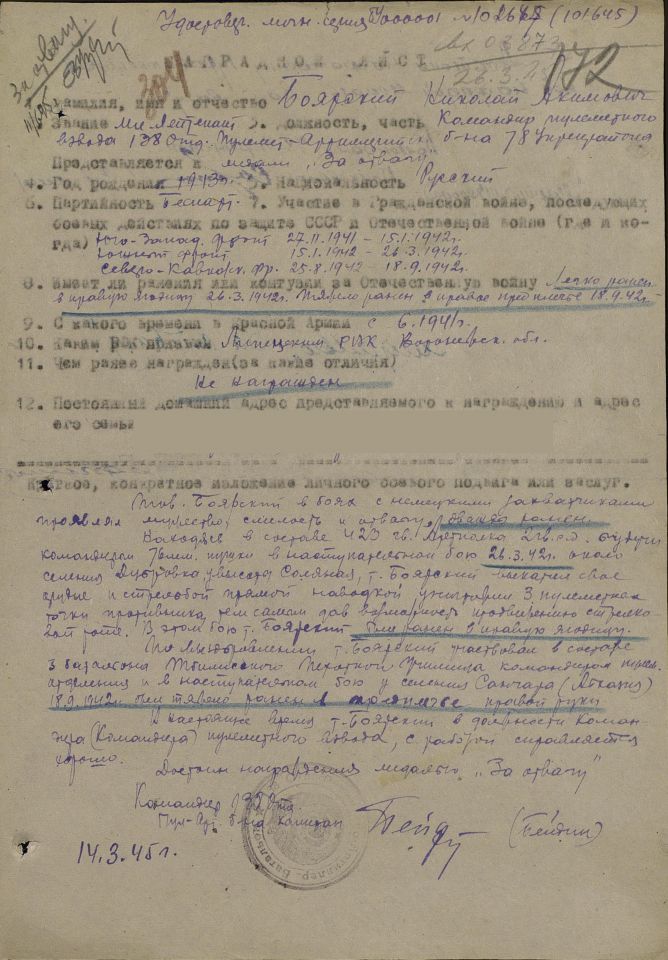 Удостовер. личн. серия № 102645 (101645)
За отвагу
вх 03873
26.3.45
172
304
НАГРАДНОЙ ЛИСТ
Фамилия, имя и отчество Боярский Николай Акимович
Звание Мл. Лейтенант 3. Должность, часть Командир пулеметного
взвода 138 Отд. Пулемет-Артиллерийск. б-на 78 Укрепрайона
Представляется к медали "За отвагу"
4. Год рождения 1913г. 5. Национальность Русский
6. Партийность Беспарт. 7. Участие в Гражданской войне, последующих
боевых действиях по защите СССР и Отечественной войне (где и ко-
гда) Юго-Запад. Фронт 27.11.1941 - 15.1.1942г.
фронт 15.1.1942 - 26.3.1942г.
Северо-Кавказск. Фр. 25.8.1942 18.9.1942г.
8. Имеет ли ранения или контузии за Отечественную войну Легко ранен
в правую ягодицу 26.3.1942г. Тяжело ранен в правое предплечье 18.9.42г.
9. С какого времени в Красной Армии с 6.1941г.
10. Каким РВК призван Липецким РВК Воронежск. обл.
11. Чем ранее награжден (за какие отличия)
Не награжден
12. Постоянный домашний адрес представляемого к награждению и адрес
его семьи
Краткое, конкретное изложение личного боевого подвига или заслуг.
Тов. Боярский в боях с немецкими захватчиками
проявлял мужество, смелость и отвагу, дважды ранен.
Находясь в составе 423 гв. Артполка 2 гв. с.д. будучи
командиром 76 мм. пушки в наступательном бою 26.3.42г. около
селения у высоты Соляная, т. Боярский выкатил свое
орудие и стрельбой прямой наводкой уничтожил 3 пулеметных
точки противника, тем самым дав возможность продвижению стрелко-
вой роте. В этом бою т. Боярский был ранен в правую ягодицу.
По выздоровлении т. Боярский участвовал в составе
3 батальона Тбилисского Пехотного Училища командиром пулем.
отделения и в наступательном бою у селения Санчара (Абхазия)
18.9.1942г. был тяжело ранен в предплечье правой руки
В настоящее время т. Боярский в должности Коман-
дира (Командира) пулеметного взвода, с работой справляется
хорошо.
Достоин награждения медалью "За отвагу"
Командир 138 Отд.
Пул-Арт. б-на капитан
(Бейдин)
14.3.45г.